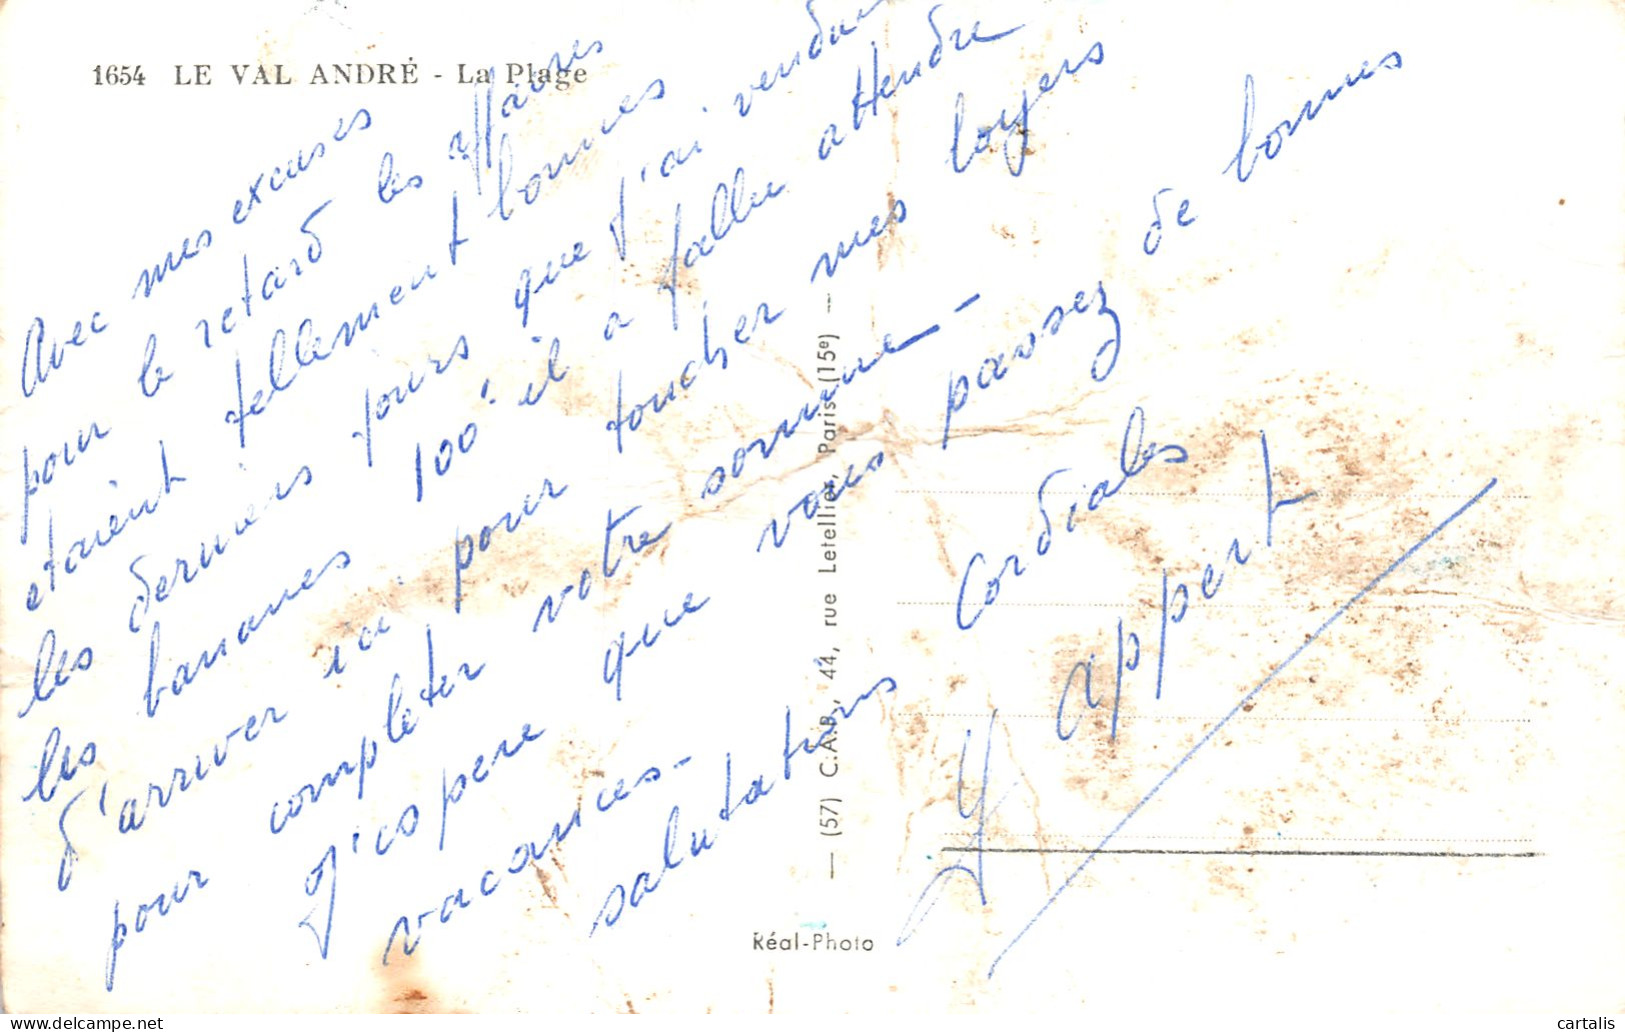 1654 LE VAL ANDRÉ - La Plage
Avec mes excuses
pour le retard les affaires
etaient tellement bonnes
les derniers jours que j'ai vendu
les bananes 100' il a fallu attendre
d'arriver ici pour toucher mes loyers
pour completer votre somme -
J'espere que vous passez de bonnes
vacances -
salutations Cordiales
Y appert
— (57) C.A.P., 44, rue Letellier, Paris (15e) —
Réal-Photo
cartalis